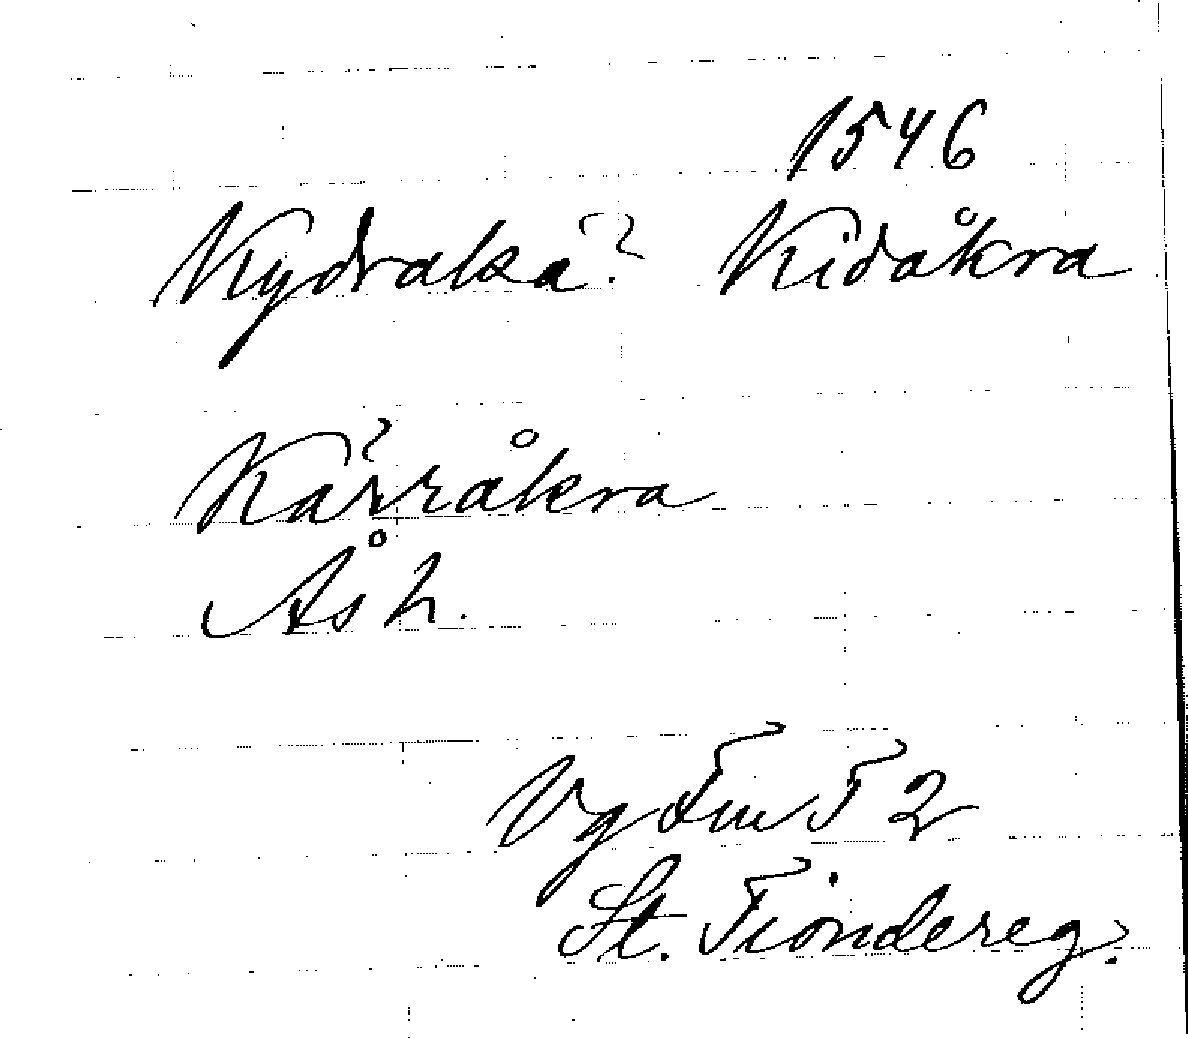 1546
Kydraka? Kidåkra
Kärråkra
Ås h.
Vg Tiu T 2
St. Tiondereg.